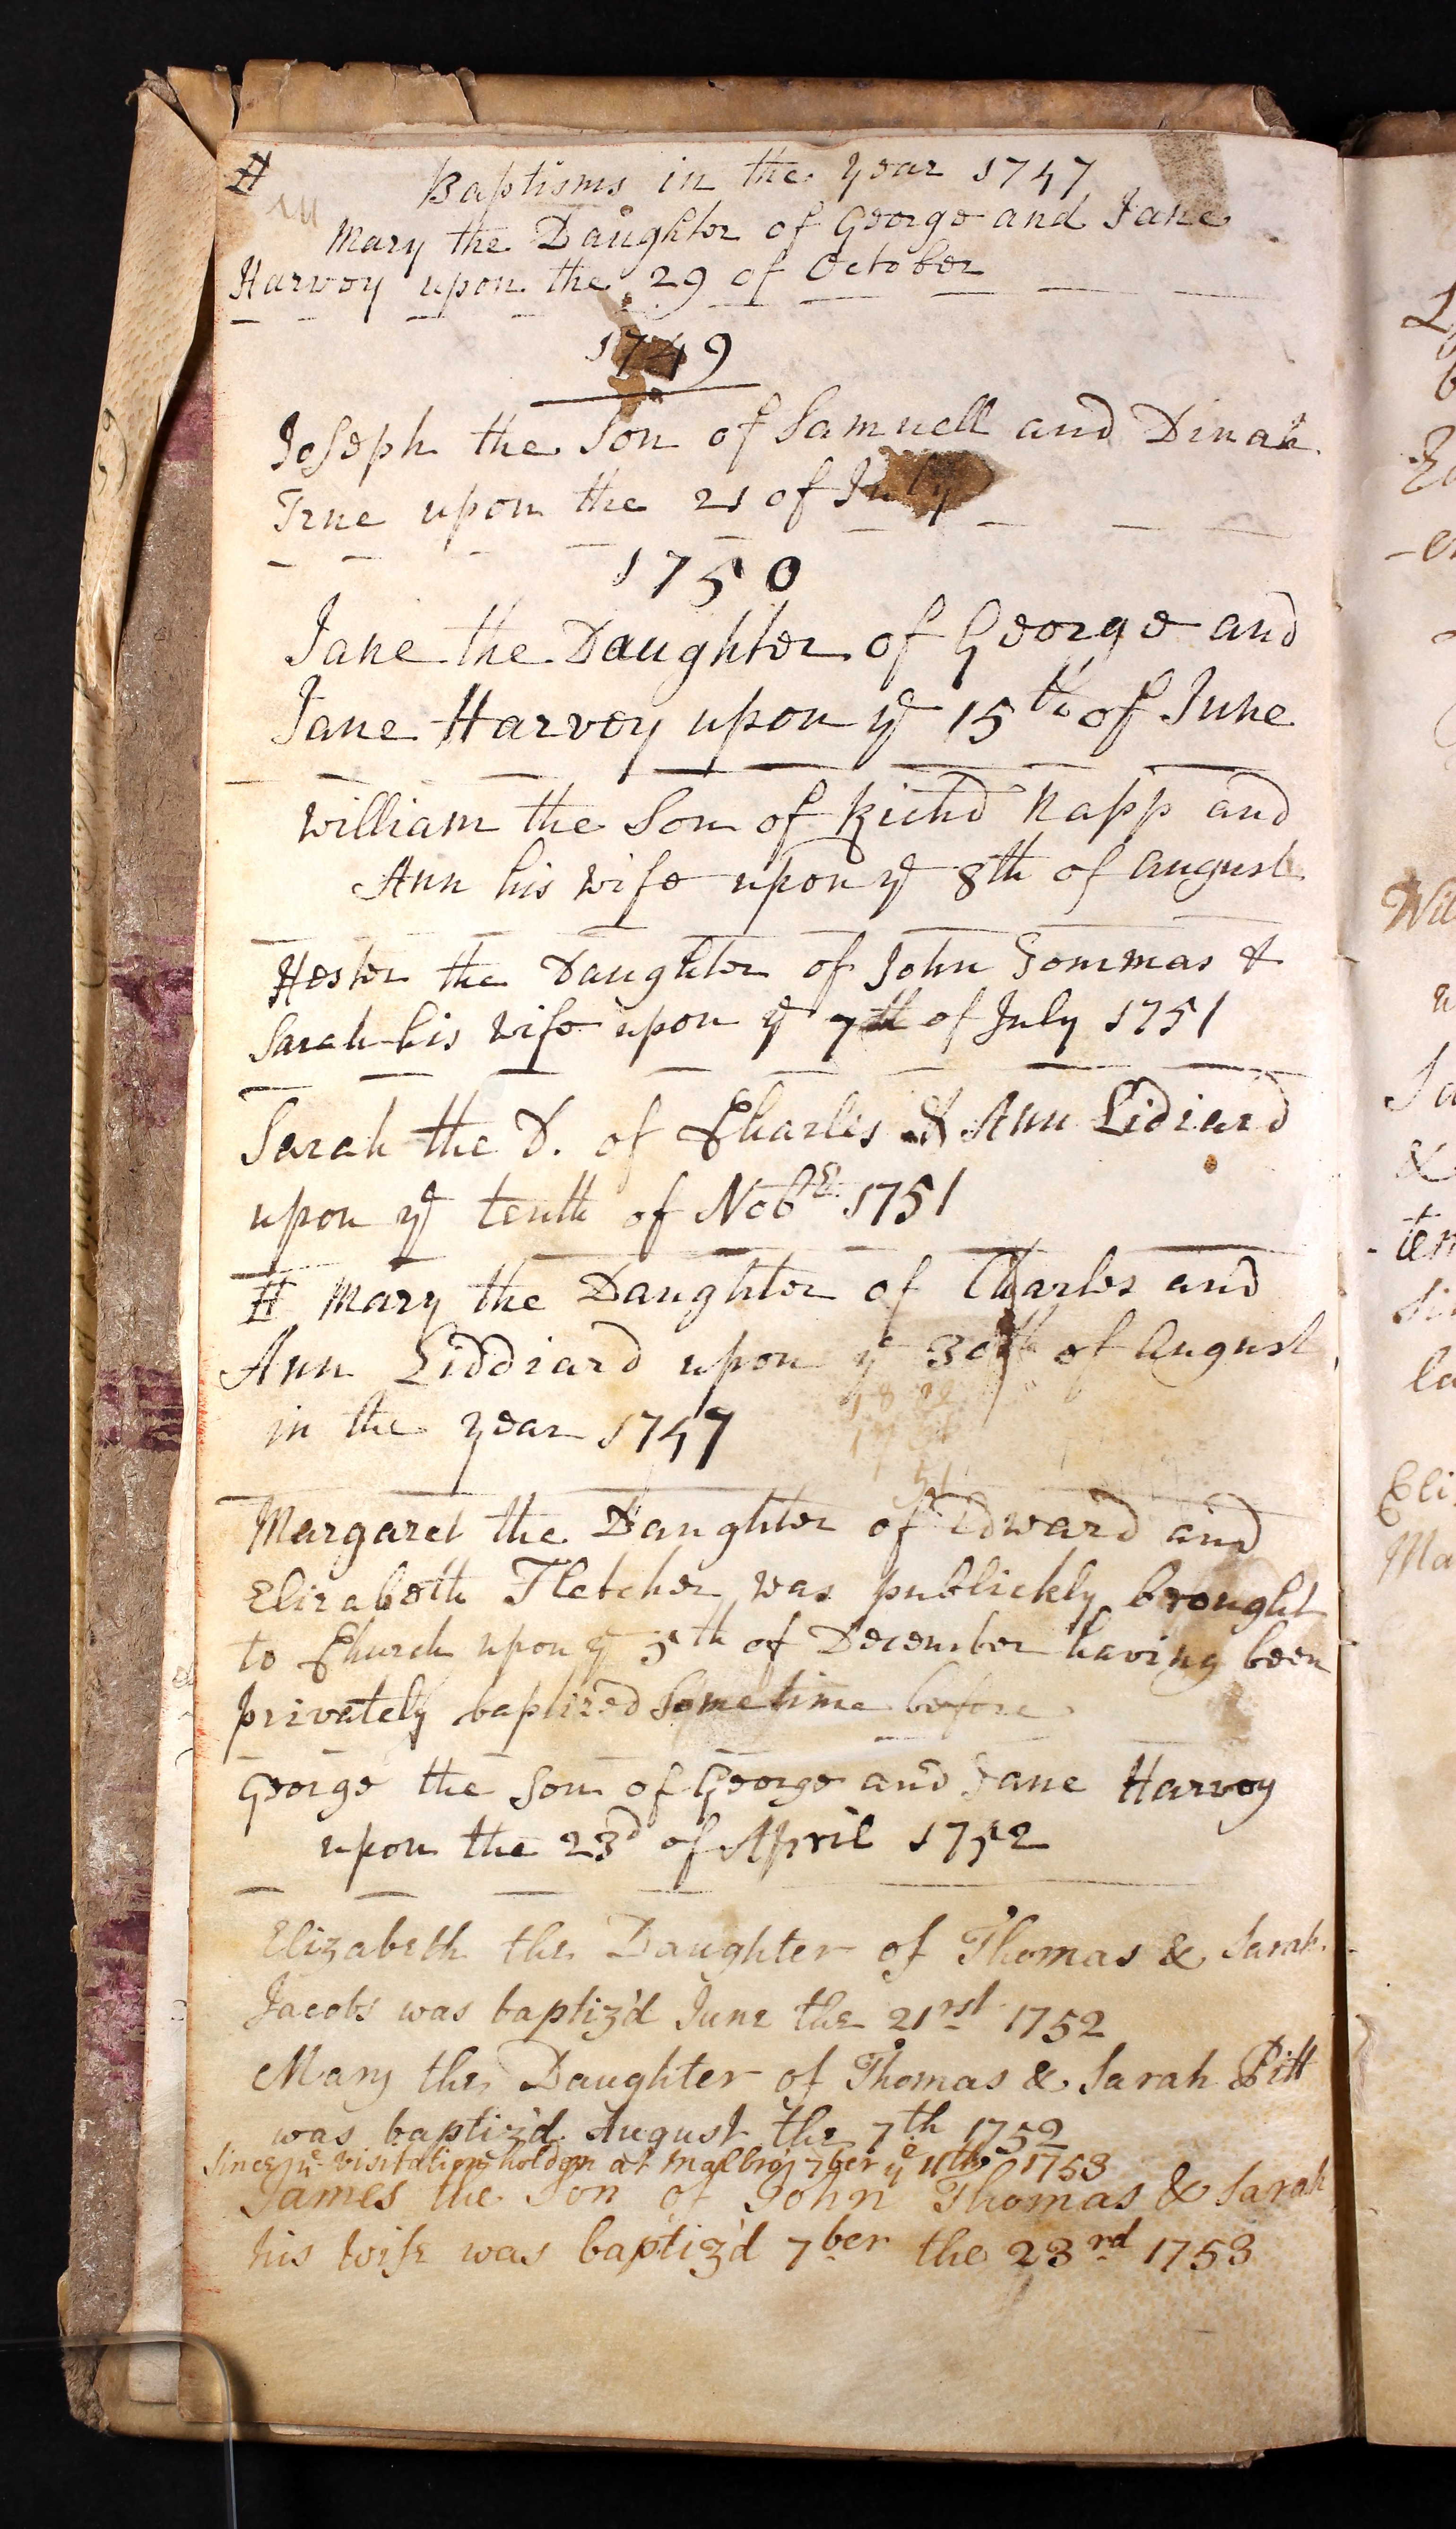 # Baptisms in the year 1747
Mary the Daughter of George and Jane
Harvey upon the 29 of October
1749
Joseph the Son of Samuell and Dinah
True upon the 21 of July
1750
Jane the Daughter of George and
Jane Harvey upon ye 15th of June
William the Son of Richd Napp and
Ann his wife upon ye 8th of August
Hester the Daughter of John Tommas &
Sarah his wife upon ye 7th of July 1751
Sarah the D. of Charles & Ann Lidiard
upon ye tenth of Nobr 1751
# Mary the Daughter of Charles and
Ann Liddiard upon ye 30th of August
in the year 1747
Margaret the Daughter of Edward and
Elizabeth Fletcher was publickly brought
to Church upon ye 5th of December having been
privately baptized sometime before
George the Son of George and Jane Harvey
upon the 23d of April 1752
Elizabeth the Daughter of Thomas & Sarah
Jacobs was baptiz'd June the 21rst 1752
Mary the Daughter of Thomas & Sarah Pitt
was baptiz'd August the 7th 1752
Since ye visitation holden at Malbro' 7ber ye 11th 1753
James the Son of John Thomas & Sarah
his wife was baptiz'd 7ber the 23rd 1753